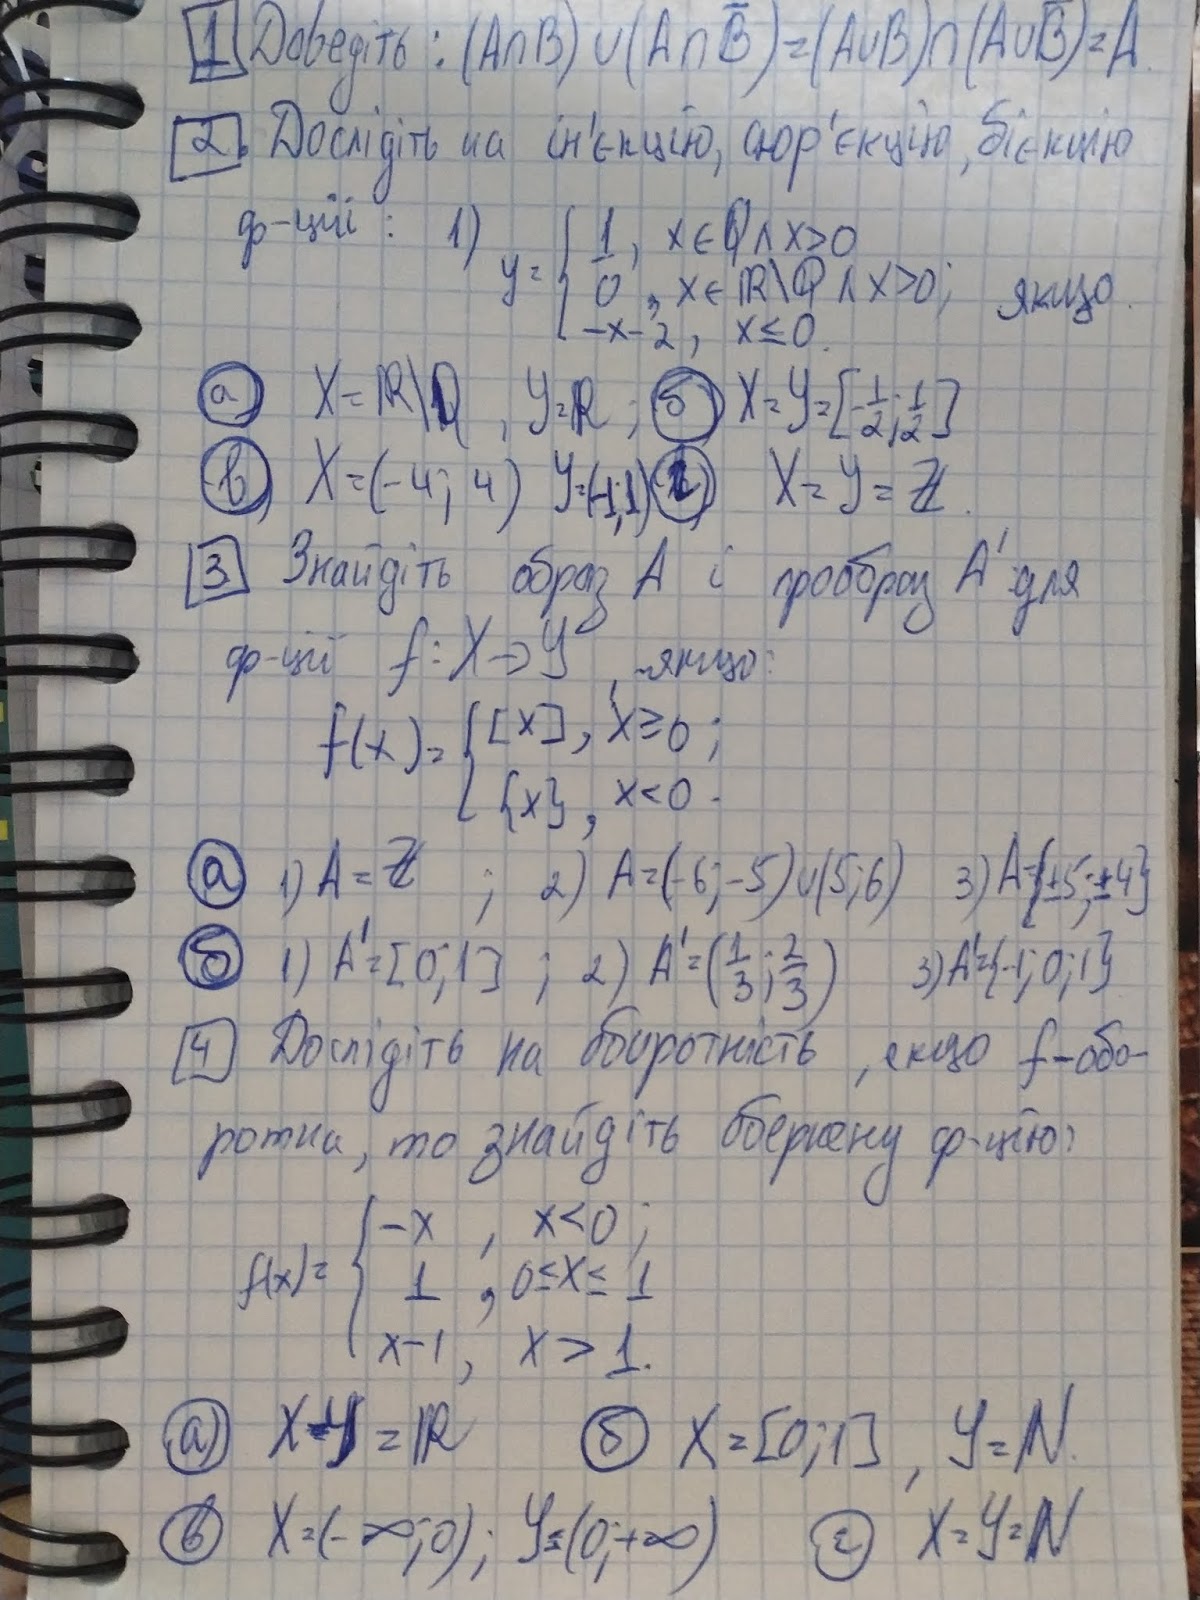 1 Доведіть: (A∩B)∪(A∩B̅)=(A∪B)∩(A∪B̅)=A.
2. Дослідіть на ін'єкцію, сюр'єкцію, бієкцію
ф-ції: 1) y= { 1, x∈ℚ∧x>0
0, x∈ℝ\ℚ∧x>0; якщо.
-x-2, x≤0.
а) X=ℝ\ℚ, Y=ℝ; б) X=Y=[-1/2; 1/2]
в) X=(-4; 4) Y=(-1;1) г) X=Y=ℤ.
3 Знайдіть образ A і прообраз A' для
ф-ції f: X→Y, якщо:
f(x)= { [x], x≥0;
{x}, x<0.
а) 1) A=ℤ; 2) A=(-6;-5)∪(5;6) 3) A={±5;±4}
б) 1) A'=[0;1]; 2) A'=(1/3; 2/3) 3) A'={-1;0;1}
4 Дослідіть на оборотність, якщо f-обо-
ротна, то знайдіть обернену ф-цію:
f(x)= { -x, x<0;
1, 0≤x≤1
x-1, x>1.
а) X=Y=ℝ б) X=[0;1], Y=ℕ.
в) X=(-∞;0); Y=(0;+∞) г) X=Y=ℕ